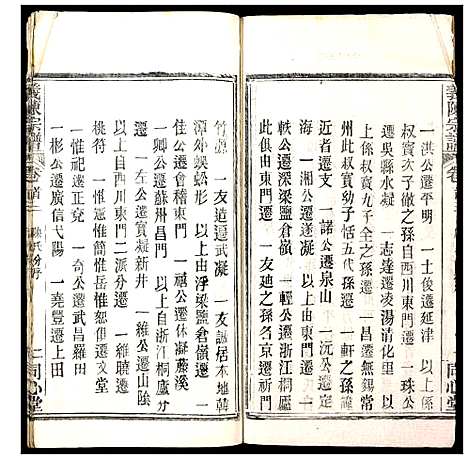 義陳宗譜
卷首
一洪公遷平明　一士俊遷延津　以上係
叔寶次子徹之孫自西川東門遷　一珠公
遷吳縣水嶺　一志達遷凌湯清化里　以
上係叔寶九子全之孫　一昌遷永嘉
州此叔寶幼子恬五代孫遷　一軒之孫遷
近者遷文　一諾公遷泉山　一沅公遷定
海　一湘公遷遂凝　以上自東門遷
軼公遷深梁鹽倉嶺　一輕公遷浙江桐廬
此俱由東門遷　一友廸之孫名京遷祈
同心堂
竹源　一友道遷武凝　一友誠居本地韓
潭外蜈蚣形　以上由浮梁鹽倉嶺遷一
佳公遷會稽東門　一禧公遷休凝藤溪
一卿公遷蘇州昌門　以上自浙江桐廬分
遷　一左公遷實凝新井　一維公遷山陰
以上自西川東門二派分遷　一維曉遷
桃符　一惟憲惟簡惟岳惟懋俱遷文堂
一惟祀遷正兗　一奇公遷武昌羅田
一彬公遷廣信弋陽　一堯豐遷上田
義陳宗譜
卷首
陳氏份野
二
同心堂